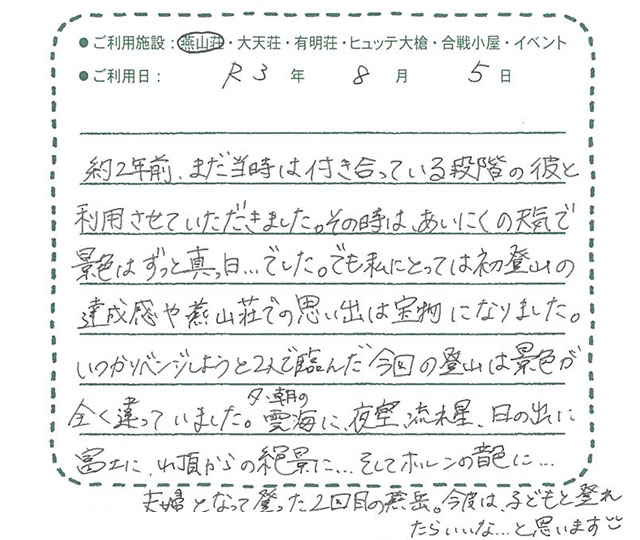 ●ご利用施設：燕山荘・大天荘・有明荘・ヒュッテ大槍・合戦小屋・イベント
●ご利用日： R3 年 8 月 5 日
約2年前、まだ当時は付き合っている段階の彼と
利用させていただきました。その時は、あいにくの天気で
景色はずっと真っ白…でした。でも私にとっては初登山の
達成感や燕山荘での思い出は宝物になりました。
いつかリベンジしようと2人で臨んだ今回の登山は景色が
全く違っていました。夕、朝の雲海に、夜空、流れ星、日の出に
富士に、山頂からの絶景に…そしてホルンの音色に…
夫婦となって登った2回目の燕岳。今度は、子どもと登れ
たらいいな…と思います